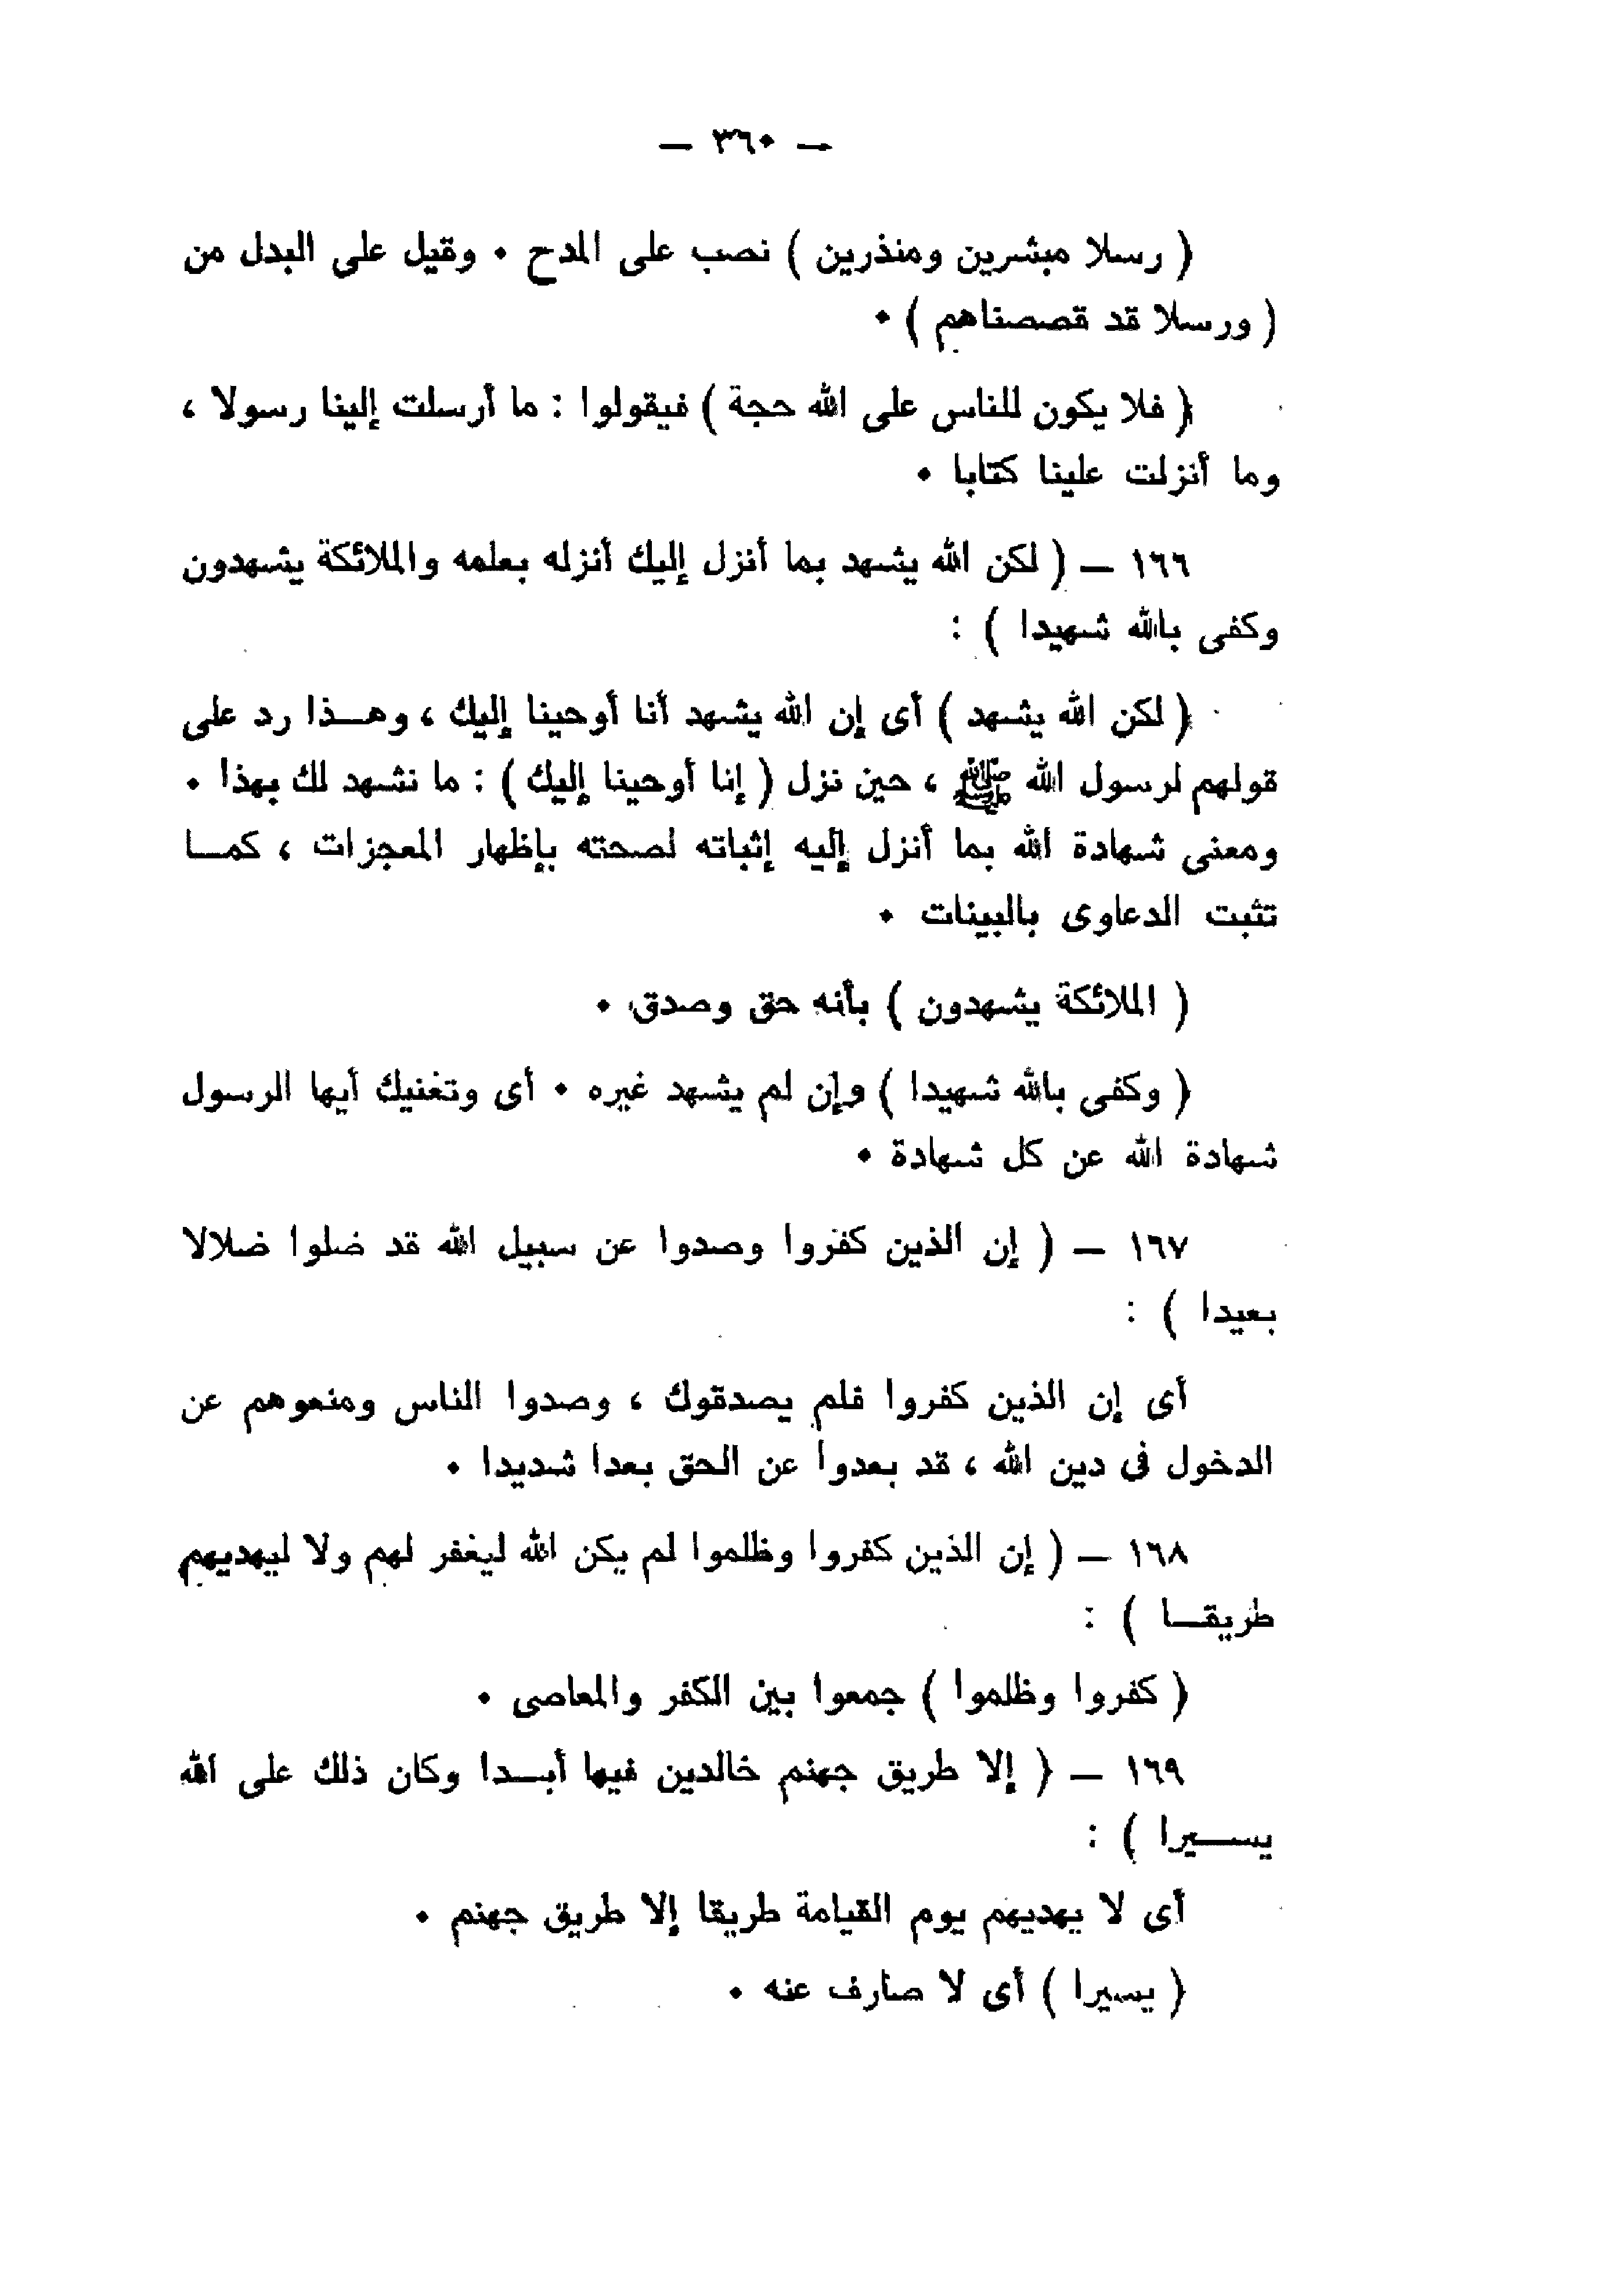 — ٣٦٠ —
( رسلا مبشرين ومنذرين ) نصب على المدح . وقيل على البدل من
( ورسلا قد قصصناهم ) .
( فلا يكون للناس على الله حجة ) فيقولوا : ما أرسلت إلينا رسولا ،
وما أنزلت علينا كتابا .
١٦٦ — ( لكن الله يشهد بما أنزل إليك أنزله بعلمه والملائكة يشهدون
وكفى بالله شهيدا ) :
( لكن الله يشهد ) أى إن الله يشهد أنا أوحينا إليك ، وهـــذا رد على
قولهم لرسول الله ﷺ ، حين نزل ( إنا أوحينا إليك ) : ما نشهد لك بهذا .
ومعنى شهادة الله بما أنزل إليه إثباته لصحته بإظهار المعجزات ، كمــا
تثبت الدعاوى بالبينات .
( الملائكة يشهدون ) بأنه حق وصدق .
( وكفى بالله شهيدا ) وإن لم يشهد غيره . أى وتغنيك أيها الرسول
شهادة الله عن كل شهادة .
١٦٧ — ( إن الذين كفروا وصدوا عن سبيل الله قد ضلوا ضلالا
بعيدا ) :
أى إن الذين كفروا فلم يصدقوك ، وصدوا الناس ومنعوهم عن
الدخول فى دين الله ، قد بعدوا عن الحق بعدا شديدا .
١٦٨ — ( إن الذين كفروا وظلموا لم يكن الله ليغفر لهم ولا ليهديهم
طريقــا ) :
( كفروا وظلموا ) جمعوا بين الكفر والمعاصى .
١٦٩ — ( إلا طريق جهنم خالدين فيها أبــدا وكان ذلك على الله
يســـيرا ) :
أى لا يهديهم يوم القيامة طريقا إلا طريق جهنم .
( يسيرا ) أى لا صارف عنه .